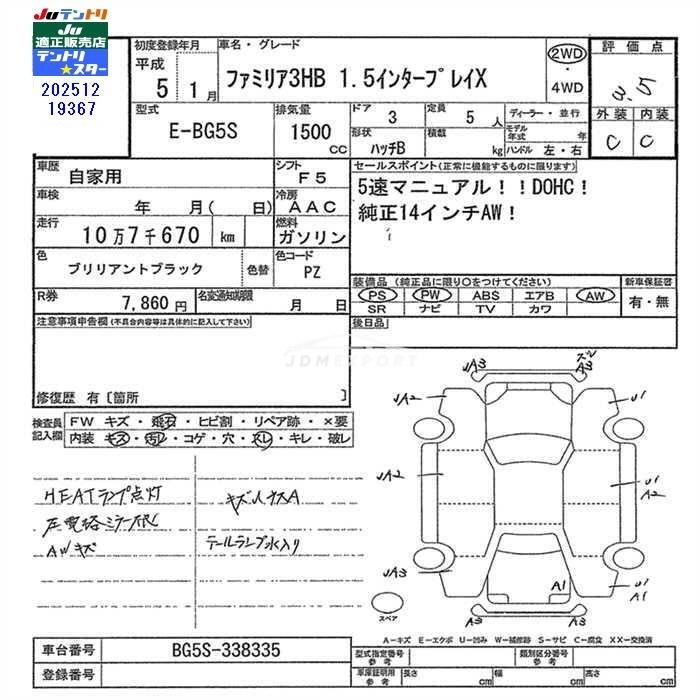 JUテントリ
JU
適正販売店
テントリ
★スター
202512
19367
初度登録年月
平成
5 1月
車名・グレード
ファミリア3HB 1.5インタープレイX
2WD
・
4WD
評価点
3.5
外装 内装
C C
型式
E-BG5S
排気量
1500 CC
ドア 3
定員 5 人
ディーラー・並行
形状 ハッチB
積載 kg
モデル年式 年
ハンドル 左・右
車歴 自家用
シフト F5
車検 年 月( 日)
冷房 AAC
走行 10万7千670 km
燃料 ガソリン
色 ブリリアントブラック 色替
色コード PZ
R券 7,860円
名変通知期限 月 日
セールスポイント(正常に機能するものに限ります)
5速マニュアル!!DOHC!
純正14インチAW!
装備品(純正品に限り○をつけてください)
PS PW ABS エアB AW
SR ナビ TV カワ
新車保証書
有・無
後日品
注意事項申告欄(不具合内容等は具体的に記入して下さい)
修復歴 有〔箇所 〕
JDMEXPORT
検査員記入欄
FW キズ・飛石・ヒビ割・リペア跡・×要
内装 キズ・汚レ・コゲ・穴・スレ・キレ・破レ
HEATランプ点灯
AWキズ
テールランプ水入り
UA3 A3
UA2 U1
UA2 U1
A2
UA3 A1 U1
A1
スペア
A3 A3
A-キズ E-エクボ U-凹み W-補修跡 S-サビ C-腐食 XX-交換済
車台番号 BG5S-338335
登録番号
型式指定番号 参考
類別区分番号 参考
車庫証明用 参考
長さ cm 幅 cm 高さ cm